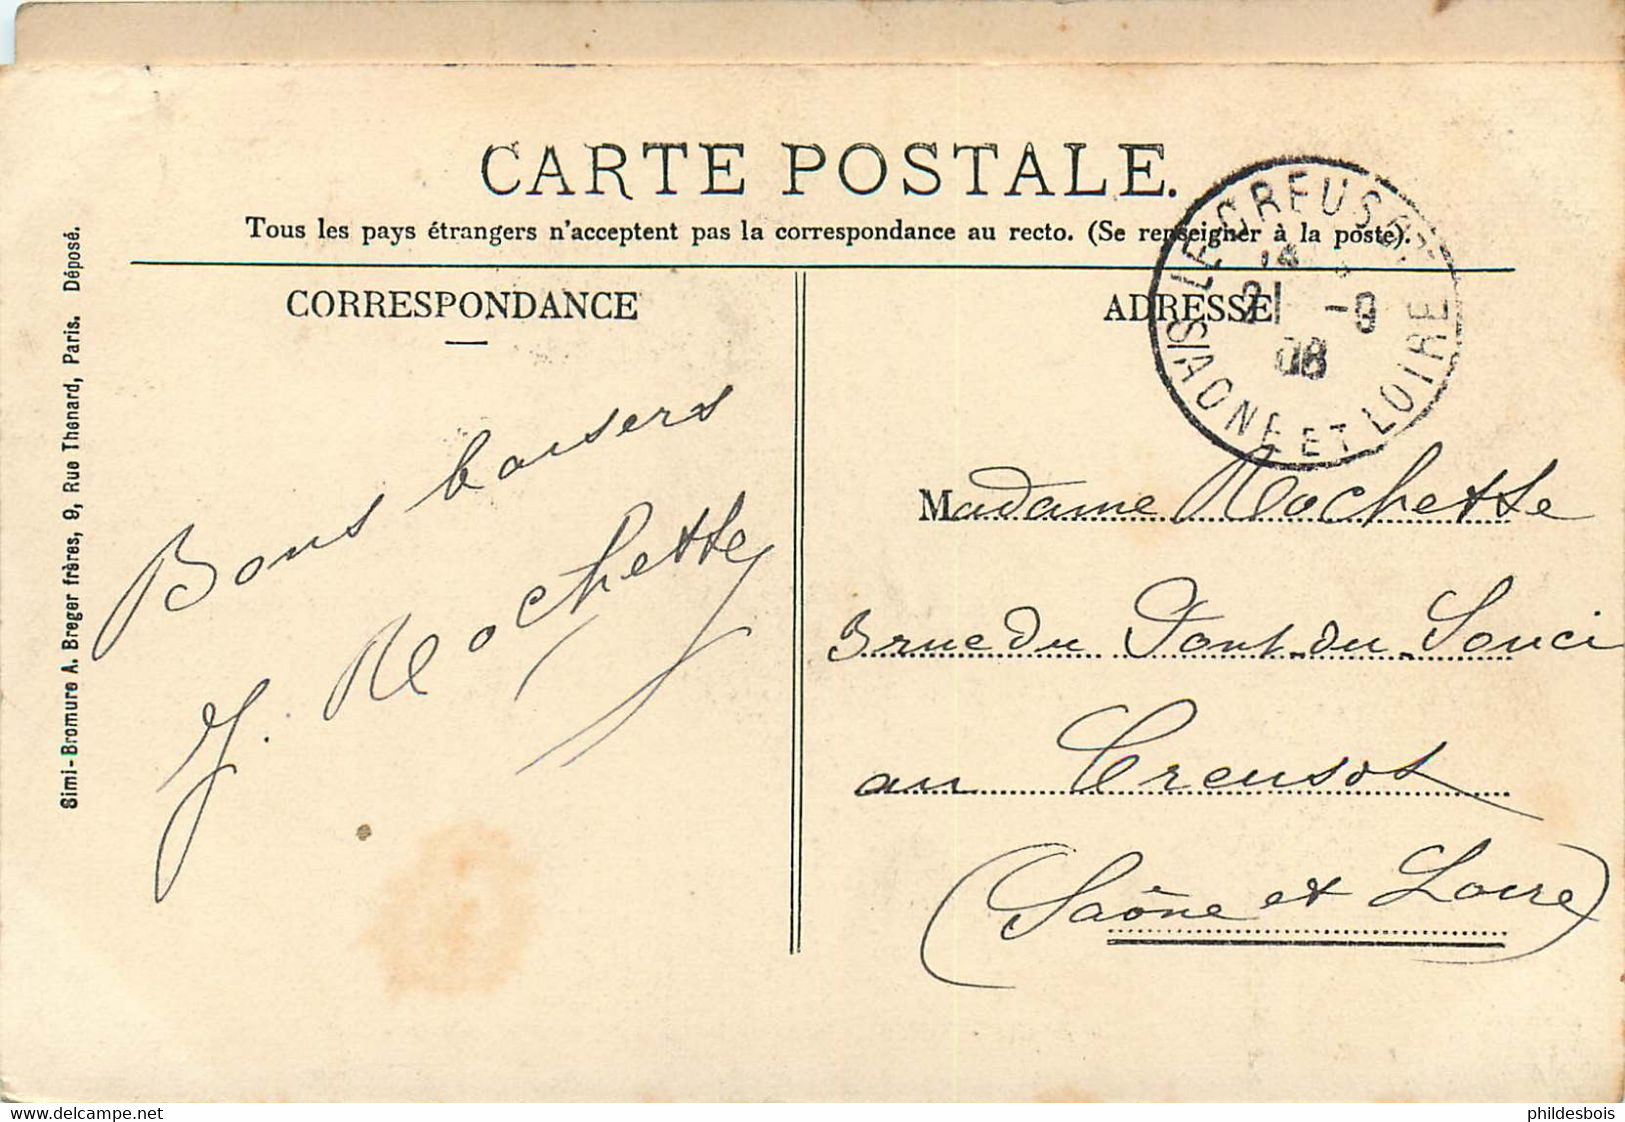 CARTE POSTALE.
Tous les pays étrangers n'acceptent pas la correspondance au recto. (Se renseigner à la poste).
CORRESPONDANCE
Bons baisers
J. Rochette
ADRESSE
LE CREUSOT
21 -9
08
SAONE ET LOIRE
Madame Rochette
3 rue du Pont du Souci
au Creusot
(Saône et Loire)
Simi-Bromure A. Breger frères, 9, Rue Thenard, Paris. Déposé.
www.delcampe.net
phildesbois